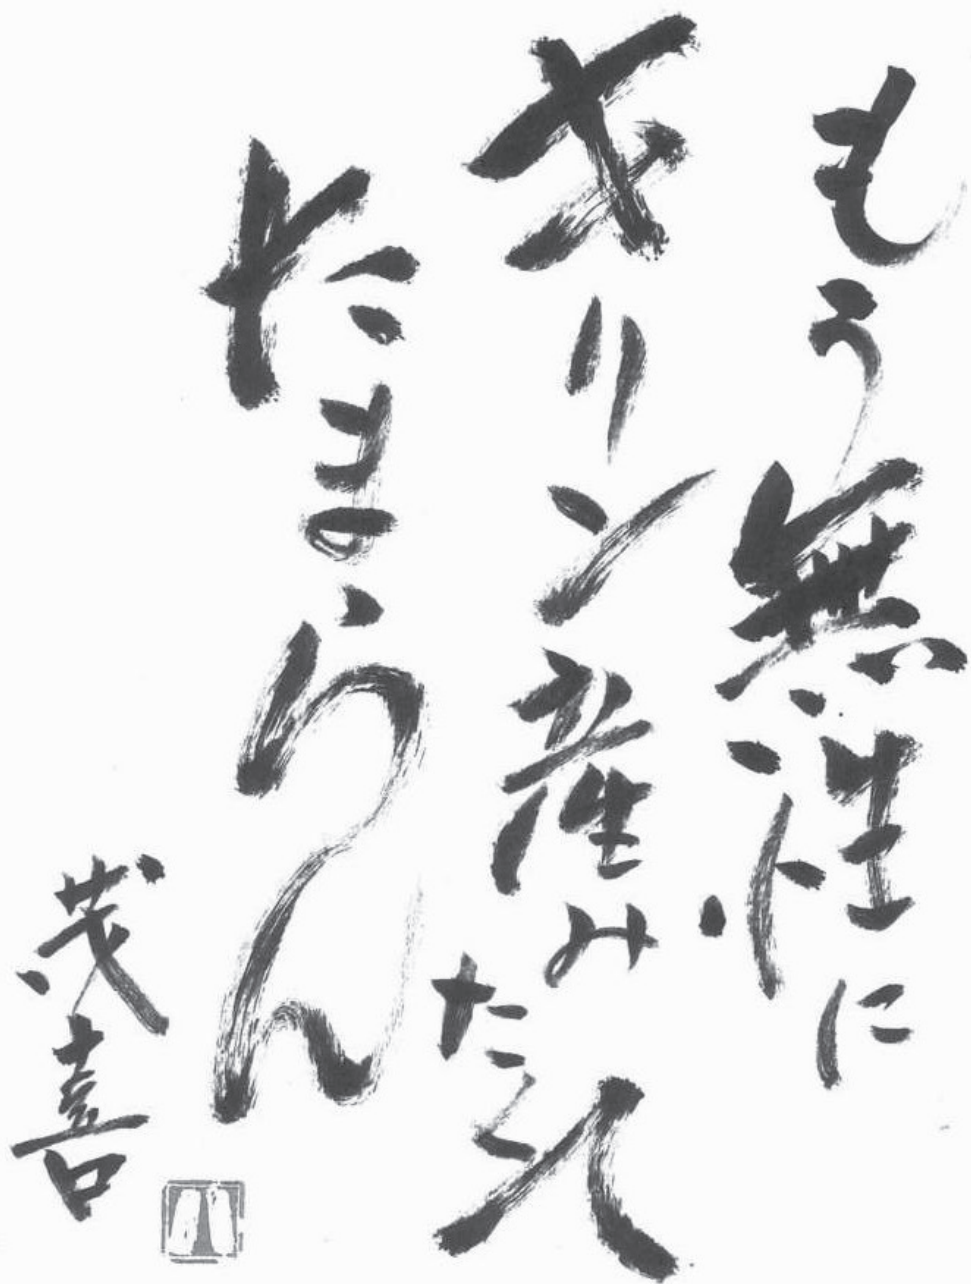 もう無性に
キリン産みたくて
たまらん
茂喜